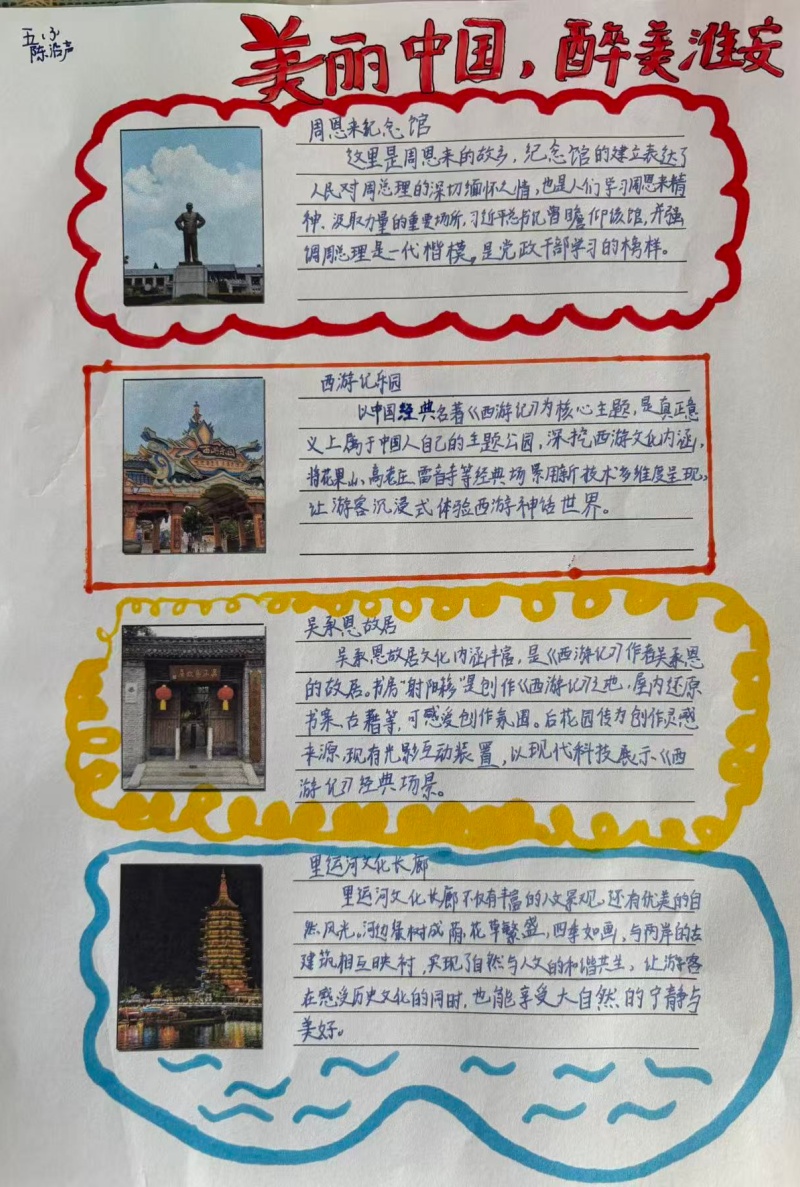 五、
陈沿声
美丽中国，醉美淮安
周恩来纪念馆
这里是周恩来的故乡，纪念馆的建立表达了
人民对周总理的深切缅怀之情，也是人们学习周恩来精
神、汲取力量的重要场所，习近平总书记曾瞻仰该馆，并强
调周总理是一代楷模，是党政干部学习的榜样。
西游记乐园
以中国经典名著《西游记》为核心主题，是真正意
义上属于中国人自己的主题公园，深挖西游文化内涵，
将花果山、高老庄、雷音寺等经典场景用新技术多维度呈现，
让游客沉浸式体验西游神话世界。
西游乐园
吴承恩故居
吴承恩故居文化内涵丰富，是《西游记》作者吴承恩
的故居。书房“射阳簃”是创作《西游记》之地，屋内还原
书案、古籍等，可感受创作氛围。后花园传为创作灵感
来源，现有光影互动装置，以现代科技展示《西
游记》经典场景。
里运河文化长廊
里运河文化长廊不仅有丰富的人文景观，还有优美的自
然风光。河边绿树成荫，花草繁盛，四季如画，与两岸的古
建筑相互映衬，实现了自然与人文的和谐共生，让游客
在感受历史文化的同时，也能享受大自然的宁静与
美好。